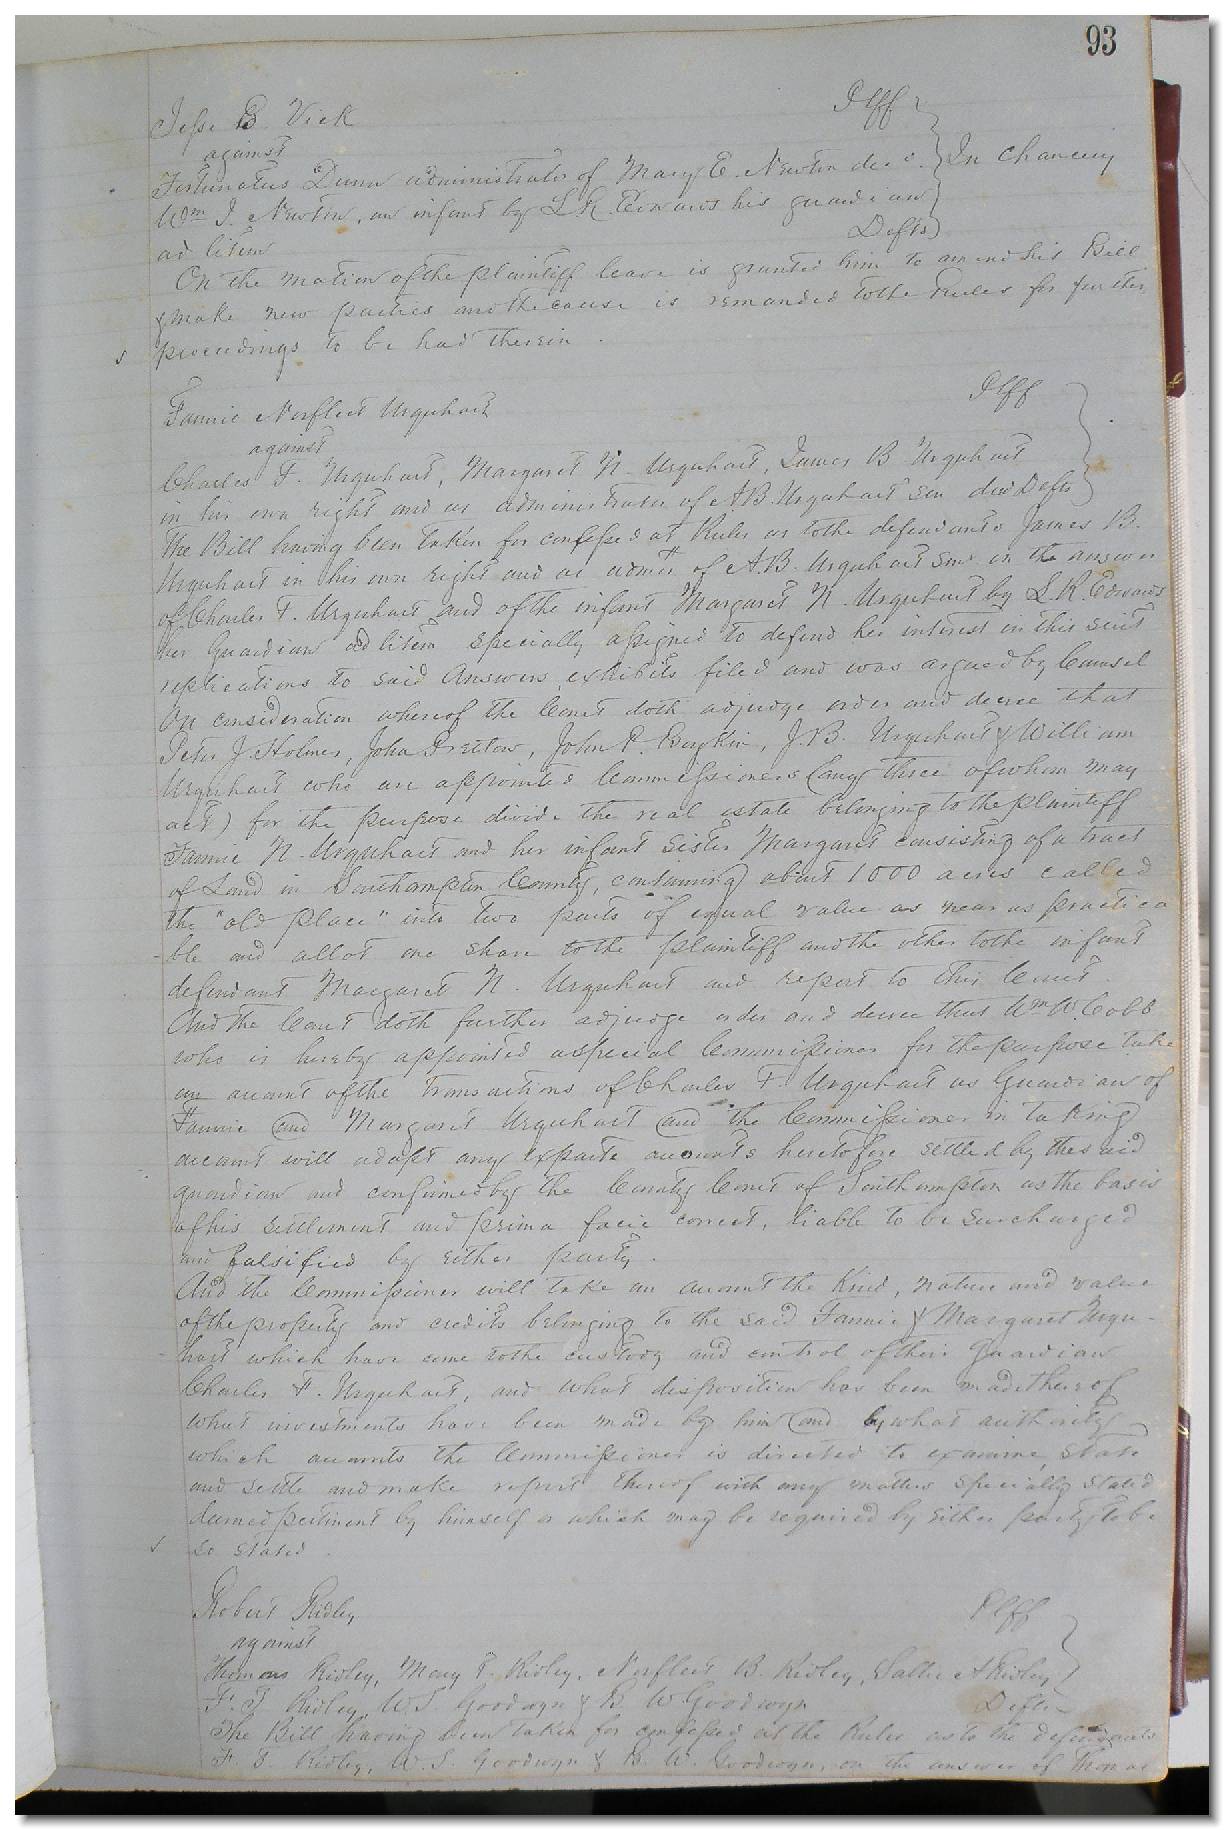 93
Jesse B Vick Plff
against
Fortunatus Dunn administrator of Mary E. Newton dec. In Chancery
Wm J. Newton, an infant by L R. Edwards his guardian
ad litem Defts
On the motion of the plaintiff leave is granted him to amend his Bill
& make new parties and the cause is remanded to the Rules for further
proceedings to be had therein.
Fannie Norfleet Urquhart Plff
against
Charles F. Urquhart, Margaret N. Urquhart, James B Urquhart
in his own right and as administrator of A.B. Urquhart Sen decd Defts
The Bill having been taken for confessed at Rules as to the defendants James B.
Urquhart in his own right and as admr of A.B. Urquhart Senr on the answer
of Charles F. Urquhart and of the infant Margaret N. Urquhart by L.R. Edwards
her Guardian ad litem specially assigned to defend her interest in this suit
replications to said Answers, exhibits filed and was argued by Counsel
On consideration whereof the Court doth adjudge order and decree that
Peter J. Holmes, John Pretlow, John P. Boykin, J.B. Urquhart & William
Urquhart who are appointed Commissioners (any three of whom may
act) for the purpose divide the real estate belonging to the plaintiff
Fannie N. Urquhart and her infant sister Margaret consisting of a tract
of Land in Southampton County, containing about 1000 acres called
the "old place" into two parts of equal value as near as practica
-ble and allot one share to the plaintiff and the other to the infant
defendant Margaret N. Urquhart and report to this Court.
And the Court doth further adjudge order and decree that Wm W. Cobb
who is hereby appointed a special Commissioner for the purpose take
an account of the transactions of Charles F. Urquhart as Guardian of
Fannie and Margaret Urquhart and the Commissioner in taking
account will adopt any exparte accounts heretofore settled by the said
guardian and confirmed by the County Court of Southampton as the basis
of his settlement and prima facie correct, liable to be surcharged
and falsified by either party.
And the Commissioner will take an account the kind, nature and value
of the property and credits belonging to the said Fannie & Margaret Urqu-
-hart which have come to the custody and control of their Guardian
Charles F. Urquhart, and what disposition has been made thereof
what investments have been made by him and by what authority
which accounts the Commissioner is directed to examine, state
and settle and make report thereof with any matters specially stated
deemed pertinent by himself or which may be required by either party to be
so stated.
Robert Ridley Plff
against
Thomas Ridley, Mary E. Ridley, Norfleet B. Ridley, Sallie A Ridley
F. T. Ridley, W.S. Goodwyn & B. W Goodwyn Defts
The Bill having been taken for confessed at the Rules as to the defendants
F. T. Ridley, W.S. Goodwyn & B. W. Goodwyn, on the answer of Thomas